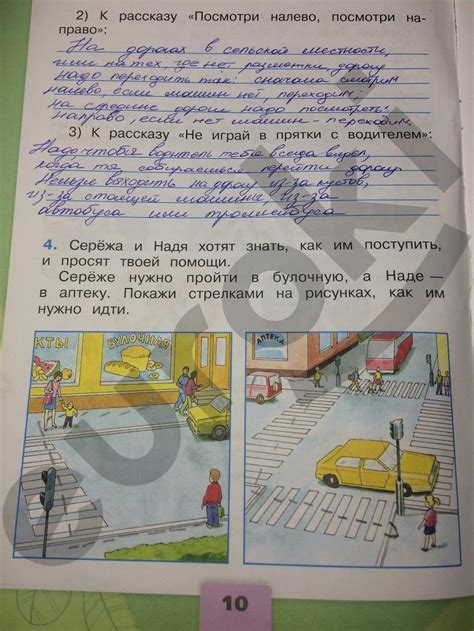 2) К рассказу «Посмотри налево, посмотри на-
право»:
На дорогах в сельской местности,
или на тех, где нет разметки, дорогу
надо переходить так: сначала смотрим
налево, если машин нет, переходим;
на средине дороги надо посмотреть
направо, если нет машин - переходим.
3) К рассказу «Не играй в прятки с водителем»:
Надо чтобы водитель тебя всегда видел,
когда ты собираешься перейти дорогу.
Нельзя выходить на дорогу из-за кустов,
из-за стоящей машины, из-за
автобуса или троллейбуса
4. Серёжа и Надя хотят знать, как им поступить,
и просят твоей помощи.
Серёже нужно пройти в булочную, а Наде —
в аптеку. Покажи стрелками на рисунках, как им
нужно идти.
КТЫ БУЛОЧНАЯ
АПТЕКА
10
euroki